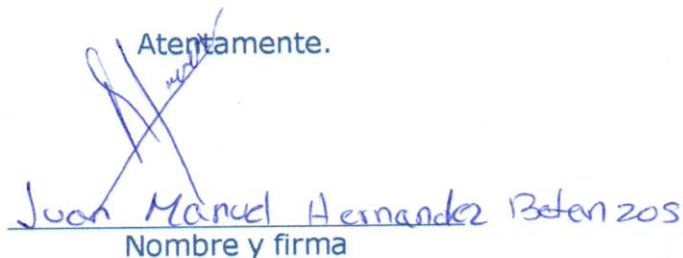 Atentamente.
Juan Manuel Hernandez Betanzos
Nombre y firma